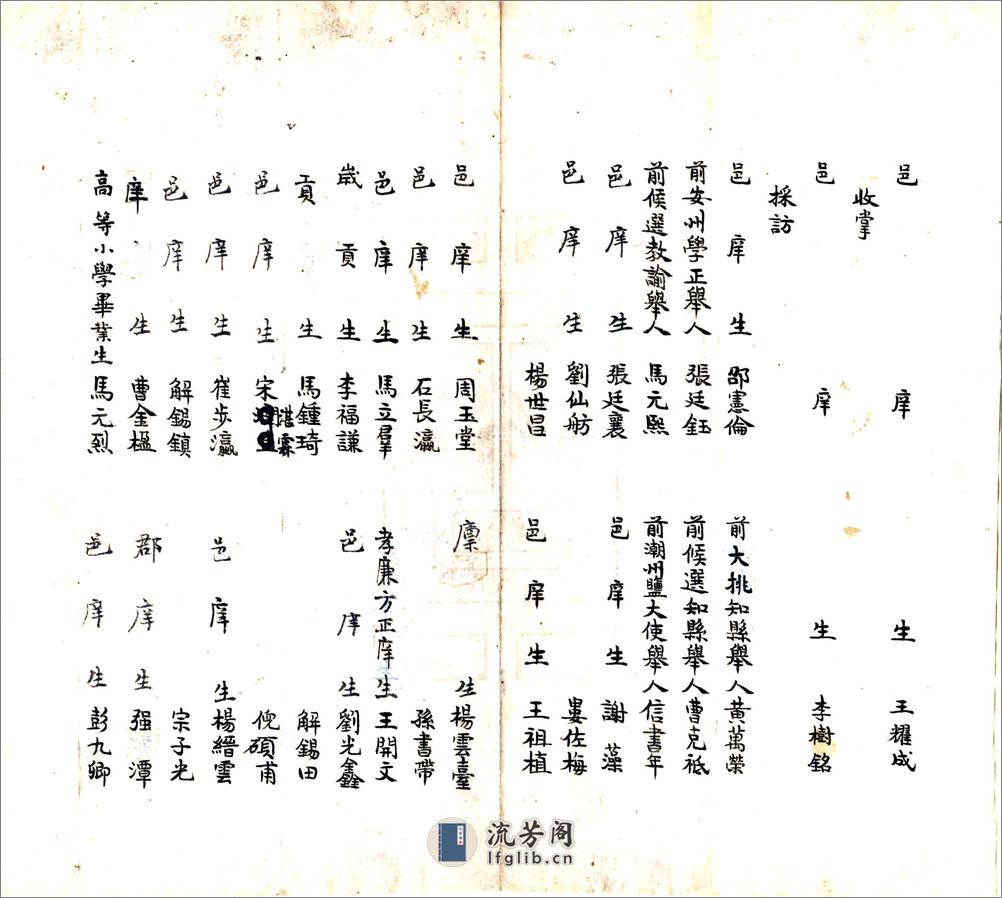 邑庠生王耀成
收掌
邑庠生李樹銘
採訪
邑庠生邵憲倫 前大挑知縣舉人黃萬榮
前安州學正舉人張廷鈺 前候選知縣舉人曹克祗
前候選教諭舉人馬元熙 前潮州鹽大使舉人信書年
邑庠生張廷襄 邑庠生謝藻
邑庠生劉仙舫 婁佐梅
楊世昌 邑庠生王祖植
邑庠生周玉堂 廩生楊雲臺
邑庠生石長瀛 孫書帶
邑庠生馬立羣 孝廉方正庠生王開文
歲貢生李福謙 邑庠生劉光鑫
貢生馬鍾琦 解錫田
邑庠生宋霖 倪碩甫
邑庠生崔步瀛 邑庠生楊縉雲
邑庠生解錫鎮 宗子光
庠生曹金楹 郡庠生强潭
高等小學畢業生馬元烈 邑庠生彭九卿
流芳阁
lfglib.cn